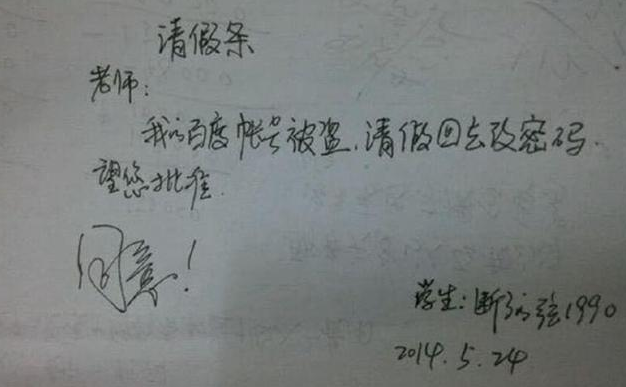 请假条
老师:
我的百度帐号被盗,请假回去改密码.
望您批准.
同意!
学生:断了的弦1990
2014.5.24